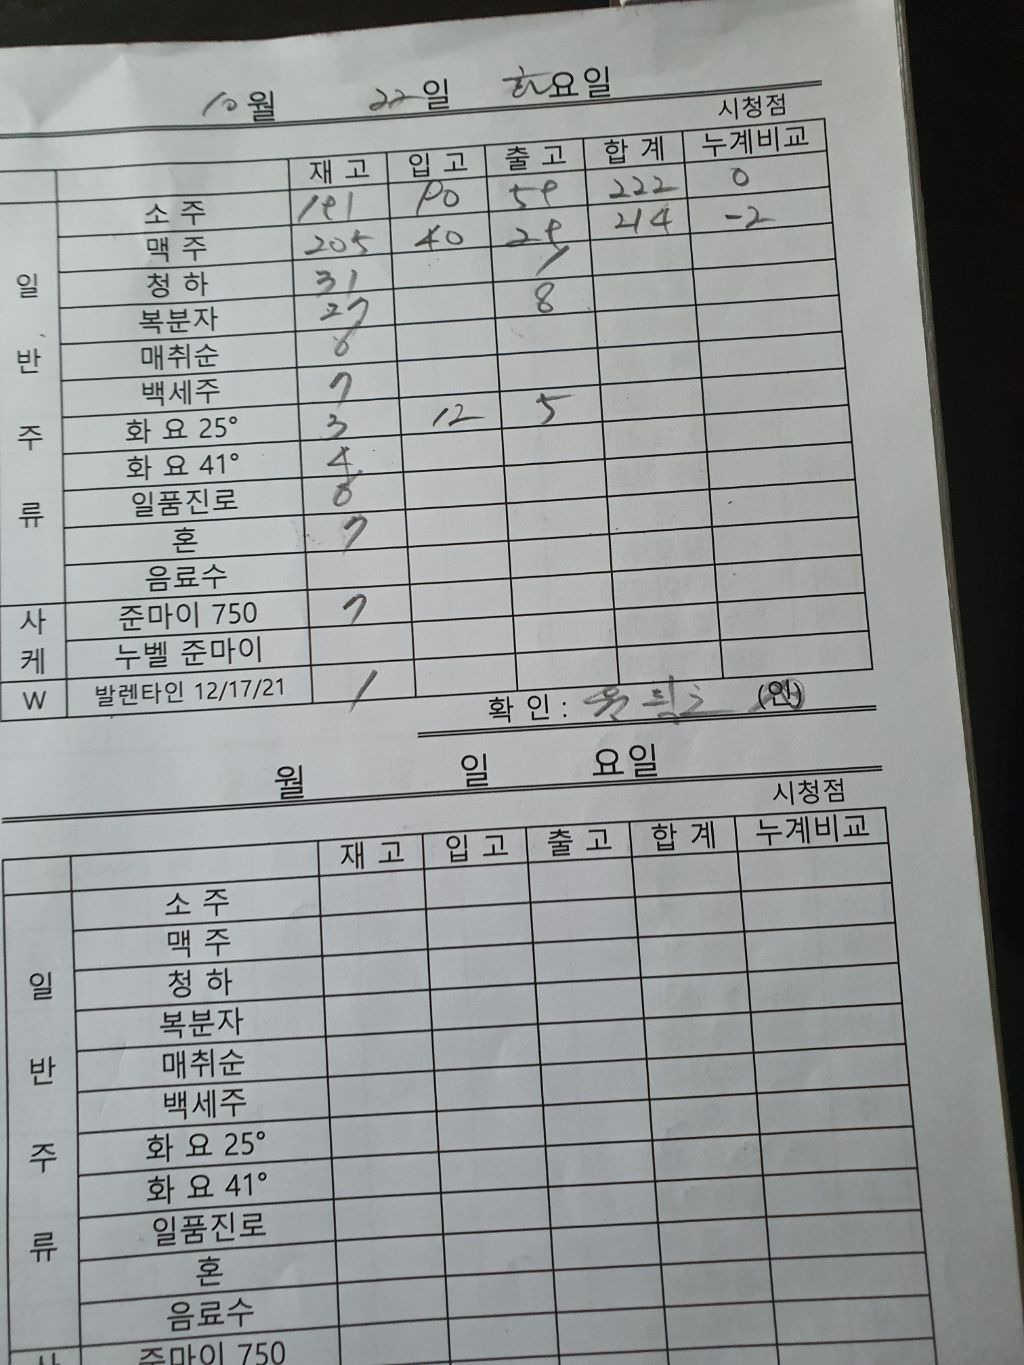 10월 22일 화요일
시청점
재 고 입 고 출 고 합 계 누계비교
일 반 주 류
소 주 191 90 59 222 0
맥 주 205 40 29 214 -2
청 하 31 1
복분자 27 8
매취순 6
백세주 7
화 요 25° 3 12 5
화 요 41° 4
일품진로 6
혼 7
음료수
사 케
준마이 750 7
누벨 준마이
W 발렌타인 12/17/21 1
확 인 : (인)
월 일 요일
시청점
재 고 입 고 출 고 합 계 누계비교
일 반 주 류
소 주
맥 주
청 하
복분자
매취순
백세주
화 요 25°
화 요 41°
일품진로
혼
음료수
사
준마이 750